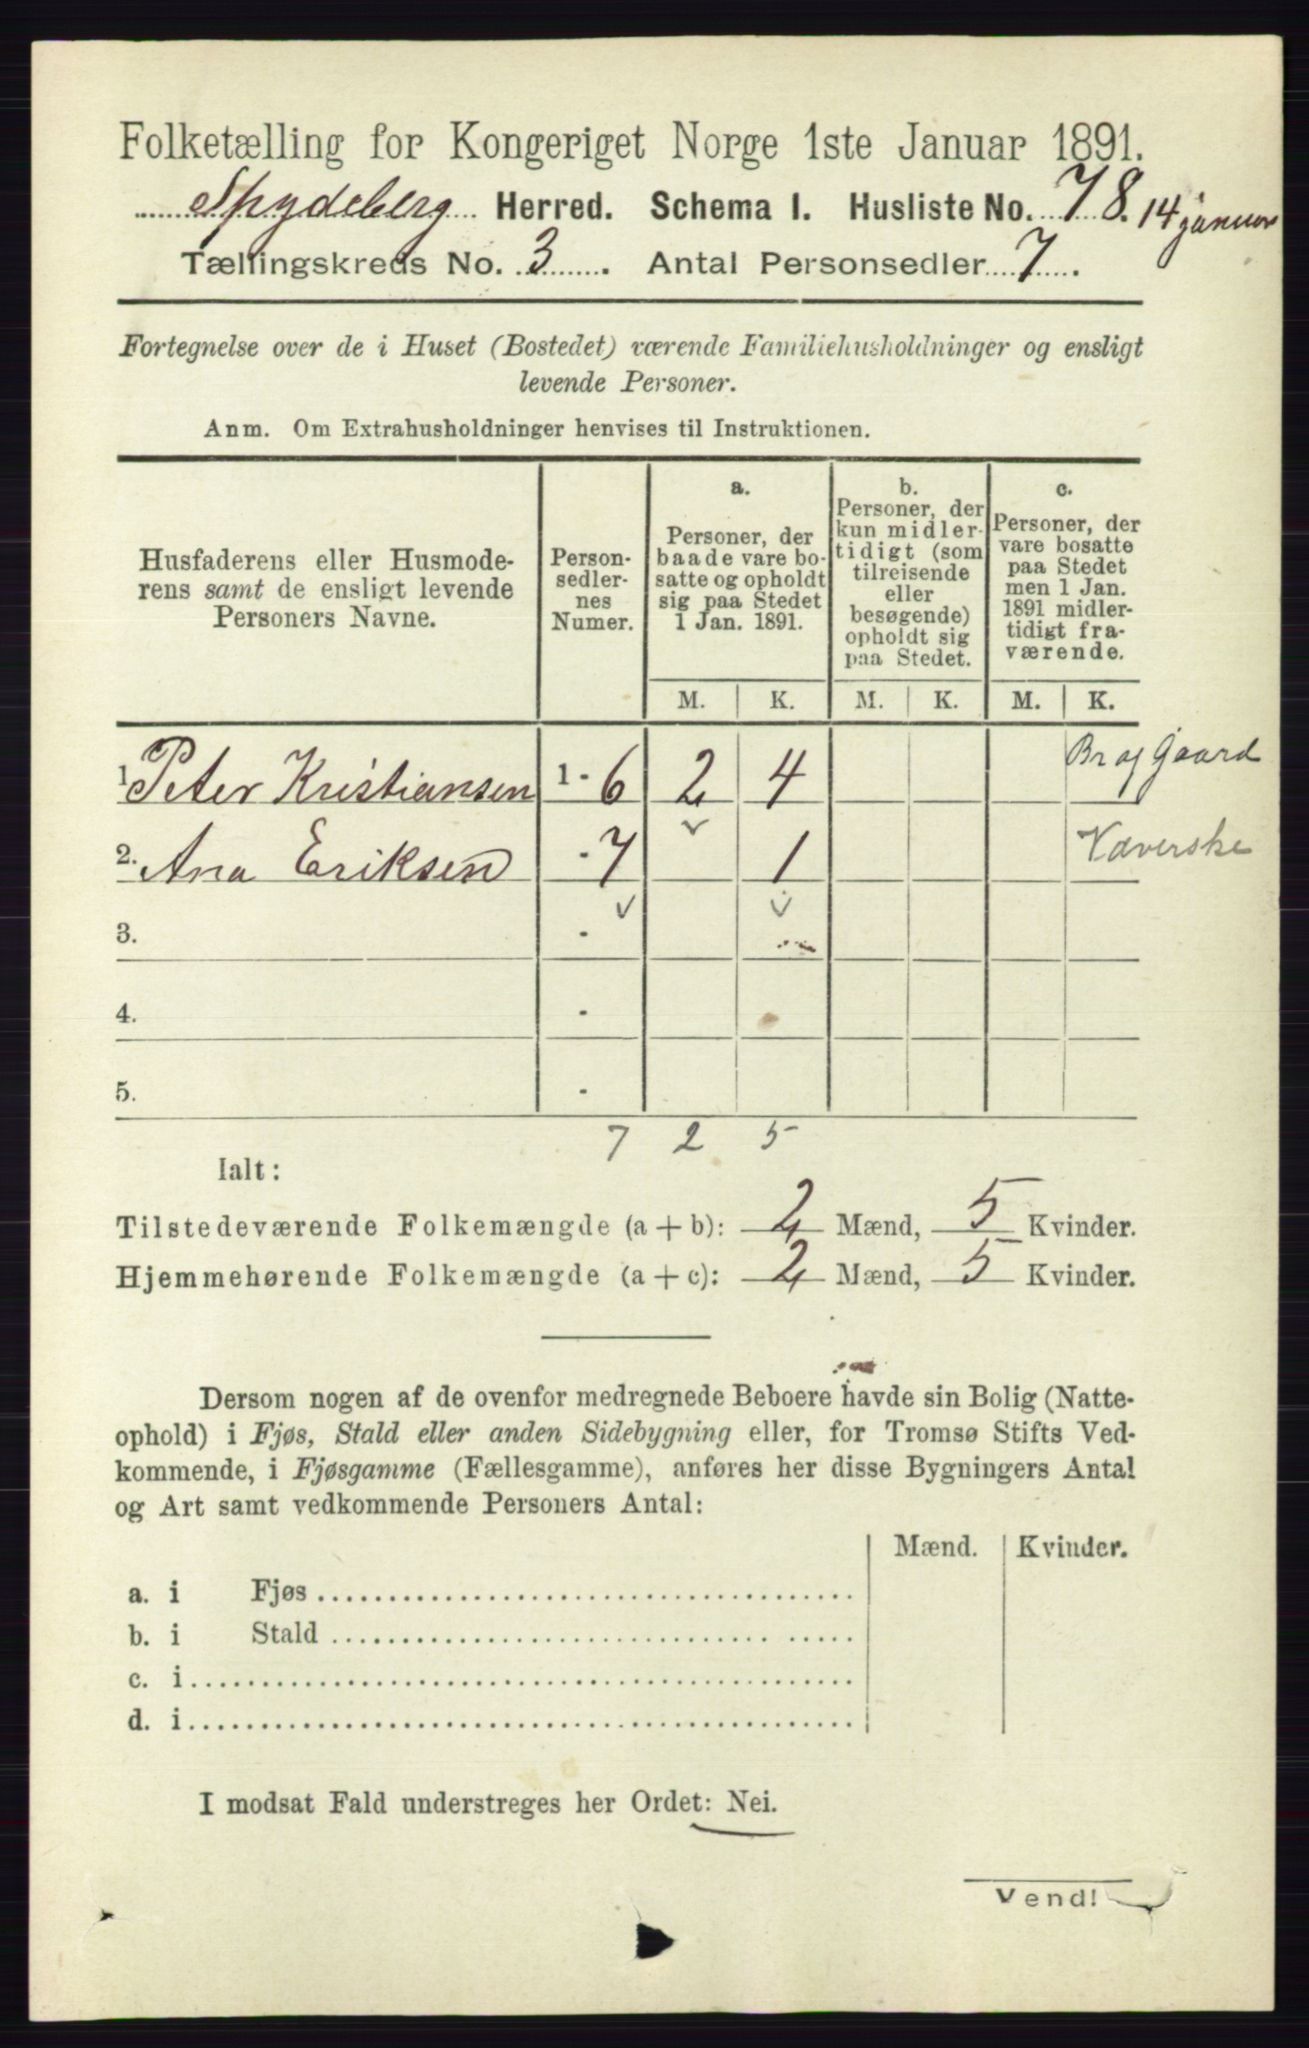 Folketælling for Kongeriget Norge 1ste Januar 1891.
Spydeberg Herred. Schema I. Husliste No. 78. 14 januar
Tællingskreds No. 3. Antal Personsedler 7.
Fortegnelse over de i Huset (Bostedet) værende Familiehusholdninger og ensligt
levende Personer.
Anm. Om Extrahusholdninger henvises til Instruktionen.
Husfaderens eller Husmode-
rens samt de ensligt levende
Personers Navne.
Person-
sedler-
nes
Numer.
a.
Personer, der
baade vare bo-
satte og opholdt
sig paa Stedet
1 Jan. 1891.
b.
Personer, der
kun midler-
tidigt (som
tilreisende
eller
besøgende)
opholdt sig
paa Stedet.
c.
Personer, der
vare bosatte
paa Stedet
men 1 Jan.
1891 midler-
tidigt fra-
værende.
M. K. M. K. M. K.
1. Peter Kristiansen 1 - 6 2 4 Br og Gaard
2. Ana Eriksen - 7 1 Væverske
3. -
4. -
5. -
7 2 5
Ialt:
Tilstedeværende Folkemængde (a + b): 2 Mænd, 5 Kvinder.
Hjemmehørende Folkemængde (a + c): 2 Mænd, 5 Kvinder.
Dersom nogen af de ovenfor medregnede Beboere havde sin Bolig (Natte-
ophold) i Fjøs, Stald eller anden Sidebygning eller, for Tromsø Stifts Ved-
kommende, i Fjøsgamme (Fællesgamme), anføres her disse Bygningers Antal
og Art samt vedkommende Personers Antal:
Mænd. Kvinder.
a. i Fjøs
b. i Stald
c. i
d. i
I modsat Fald understreges her Ordet: Nei.
Vend!